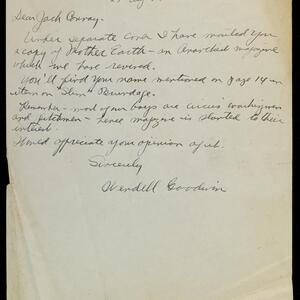 Dear Jack Conroy,
Under separate cover I have mailed you
a copy of Mother Earth - an Anarchist magazine
which we have revered.
You'll find your name mentioned on page 14 in
item on "Slim" Brundage.
Remember - most of our boys are circus workingmen
and pitchmen - hence magazine is slanted to their
interest.
Would appreciate your opinion of it.
Sincerely
Wendell Goodwin